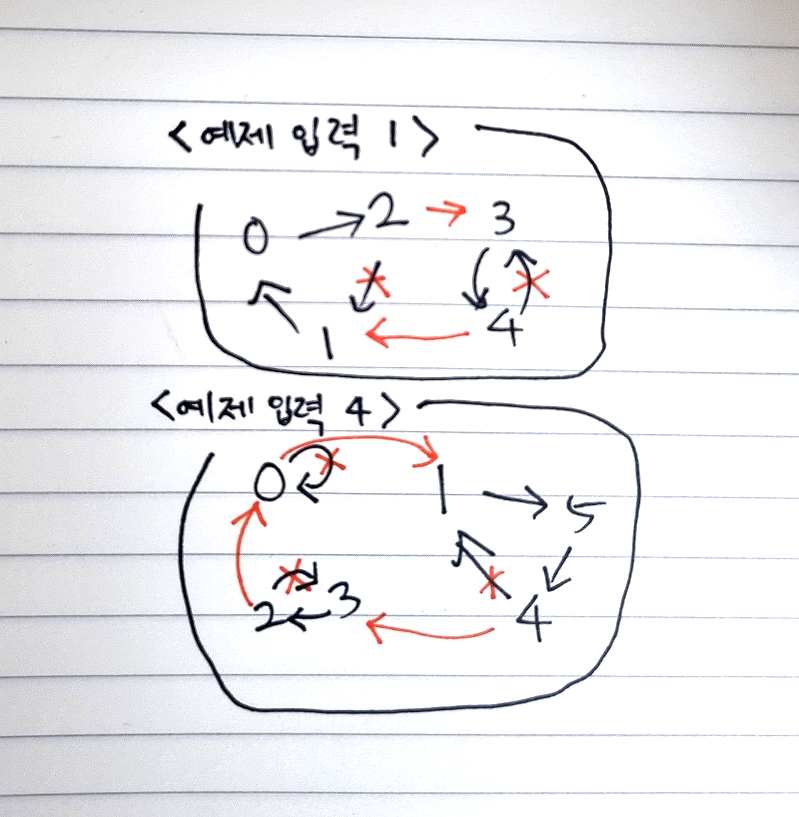 <예제 입력 1>
0 → 2 → 3
1 ← 4
<예제 입력 4>
0 1 → 5
2 ← 3 4